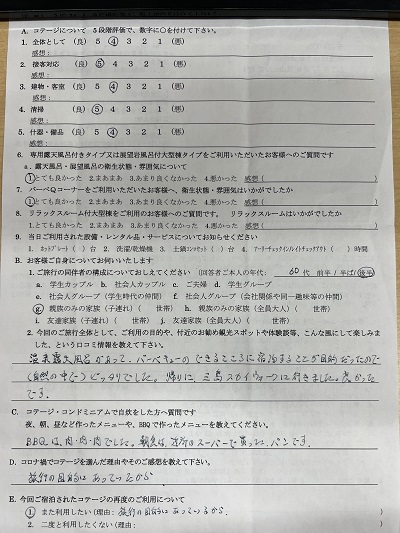 A. コテージについて 5段階評価で、数字に○を付けて下さい。
1. 全体として (良) 5 4 3 2 1 (悪)
感想:
2. 接客対応 (良) 5 4 3 2 1 (悪)
感想:
3. 建物・客室 (良) 5 4 3 2 1 (悪)
感想:
4. 清掃 (良) 5 4 3 2 1 (悪)
感想:
5. 什器・備品 (良) 5 4 3 2 1 (悪)
感想:
6. 専用露天風呂付きタイプ又は展望岩風呂付大型棟タイプをご利用いただいたお客様へのご質問です
a. 露天風呂・展望風呂の衛生状態・雰囲気について
1.とても良かった 2.まあまあ 3.あまり良くなかった 4.悪かった 感想( )
7. バーベQコーナーをご利用いただいたお客様へ、衛生状態・雰囲気はいかがでしたか
1.とても良かった 2.まあまあ 3.あまり良くなかった 4.悪かった 感想( )
8. リラックスルーム付大型棟をご利用のお客様へのご質問です。 リラックスルームはいかがでしたか
1.とても良かった 2.まあまあ 3.あまり良くなかった 4.悪かった 感想( )
9. 当日ご利用された設備・レンタル品・サービスについてお知らせください
1. ホットプレート( )台 2. 洗濯/乾燥機 3. 土鍋コンロセット( )台 4. アーリーチェックイン/レイトチェックアウト( )時間
B. お客様ご自身についてお伺いいたします
1.ご旅行の同伴者の構成についておしえてください (回答者ご本人の年代: 60代 前半/半ば/後半)
a. 学生カップル b. 社会人カップル c. ご夫婦 d. 学生グループ
e. 社会人グループ(学生時代の仲間) f. 社会人グループ(会社関係や同一趣味等の仲間)
g. 親族のみの家族(子連れ)( 世帯) h. 親族のみの家族(全員大人)( 世帯)
i. 友達家族(子連れ)( 世帯) j. 友達家族(全員大人)( 世帯)
2. 今回のご旅行全体として、ご利用の目的や、付近のお勧め観光スポットや体験談等、こんな風にして楽しみまし
た、という口コミ情報を教えてください。
温泉露天風呂があって、バーベキューのできるところに宿泊することが目的だったので
(自然の中で) ピッタリでした。帰りに、三島スカイウォークに行きました。良かった
です。
C. コテージ・コンドミニアムで自炊をした方へ質問です
夜、朝、昼など作ったメニューや、BBQで作ったメニューを教えてください。
BBQは、肉・肉・肉でした。朝食は、スーパーで買った、パンです。
D. コロナ禍でコテージを選んだ理由やそのご感想を教えて下さい。
旅行の目的にあっていたから
E. 今回ご宿泊されたコテージの再度のご利用について
1 また利用したい(理由: 旅行の目的にあっているから。
2. 二度と利用したくない(理由: